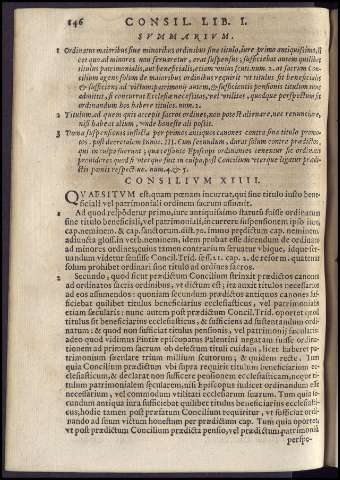 146 CONSIL. LIB. I.
SVMMARIVM.
1 Ordinatus maioribus siue minoribus ordinibus sine titulo, iure primo antiquissimo,
cet quo ad minores non seruaretur, erat suspensus; sufficiebat autem quilibet
titulus patrimonialis, aut beneficialis, etiam vnius scuti. num. 2. at sacrum Con
cilium agens solum de maioribus ordinibus requirit vt titulus sit beneficialis
& sufficiens ad victum: patrimonij autem, & sufficientis pensionis titulum tunc
admittit, si contraret Ecclesiæ necessitas, vel vtilitas, quodque perspectum sit
ordinandum hos habere titulos. num. 2.
2 Titulum, ad quem quis accepit sacros ordines, non potest alienare, nec renunciare,
nisi habeat alium, vnde honeste ali possit.
3 Pœna suspensionis inflicta per primos antiquos canones contra sine titulo promo
tos, post decretalem Innoc. III. Cum secundum, durat solum contra prædictos,
qui in culpa fuerunt; quare solum Episcopi ordinantes tenentur sic ordinatis
prouidere; quod si vterque fuit in culpa, post Concilium vterque ligatur prædi-
ctis pœnis respectiue. num. 4. & 5.
CONSILIVM XIIII.
QVAESITVM est, quam pœnam incurrat, qui sine titulo iusto bene-
ficiali vel patrimoniali ordinem sacrum assumit.
1 Ad quod respõdetur primo, iure antiquissimo statutũ fuisse ordinatum
sine titulo beneficiali, vel patrimoniali, incurrere suspensionem ipso iure,
cap. neminem. & cap. sanctorum. dist. 70. immo prædictum cap. neminem.
adiuncta glossa in verb. neminem, idem probat esse dicendum de ordinato
ad minores ordines; quicquid tamen contrarium seruatur vbique, idque seruandum
videtur sensisse Concil. Trid. sess. 21. cap. 2. de reform. quatenus
solum prohibet ordinari sine titulo ad ordines sacros.
2 Secundo, quod sicut prædictum Concilium strinxit prædictos canones
ad ordinatos sacris ordinibus, vt dictum est; ita auxit titulos necessarios
ad eos assumendos: quoniam secundum prædictos antiquos canones suf-
ficiebat quilibet titulus beneficiarius ecclesiasticus, vel patrimonialis
etiam sæcularis: nunc autem post prædictum Concil. Trid. oportet quod
titulus sit beneficiarius ecclesiasticus, & sufficiens ad sustentandum ordi-
natum: & quod non sufficiat titulus pensionis, vel patrimonij sæcularis:
adeo quod vidimus Printie episcopatus Palentini negatam fuisse ordina-
tionem ad primum sacrum ob defectum tituli cuidam, licet haberet pa-
trimonium sæculare trium millium scutorum; & quidem recte. Tum
quia Concilium prædictum vbi supra requirit titulum beneficiarium ec-
clesiasticum, & declarat non sufficere pensionem ecclesiasticam, neque ti-
tulum patrimonialem sæcularem, nisi Episcopus iudicet ordinandum esse
necessarium, vel commodum vtilitati ecclesiarum suarum. Tum quia se-
cundum antiqua iura sufficiebat quilibet titulus beneficiarius ecclesiasti-
cus; hodie tamen post præfatum Concilium requiritur, vt sufficiat ordi-
nando ad suum victum honestum per prædictum cap. Tum quia oportet,
vt post prædictum Concilium prædicta pensio, vel prædictum patrimoniũ
perspe-